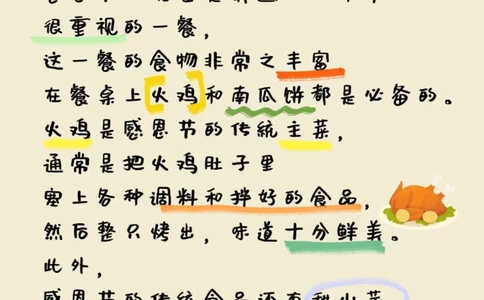 很重视的一餐,
这一餐的食物非常之丰富
在餐桌上火鸡和南瓜饼都是必备的。
火鸡是感恩节的传统主菜,
通常是把火鸡肚子里
塞上各种调料和拌好的食品,
然后整只烤出, 味道十分鲜美。
此外,
感恩节的传统食品还有甜山芋